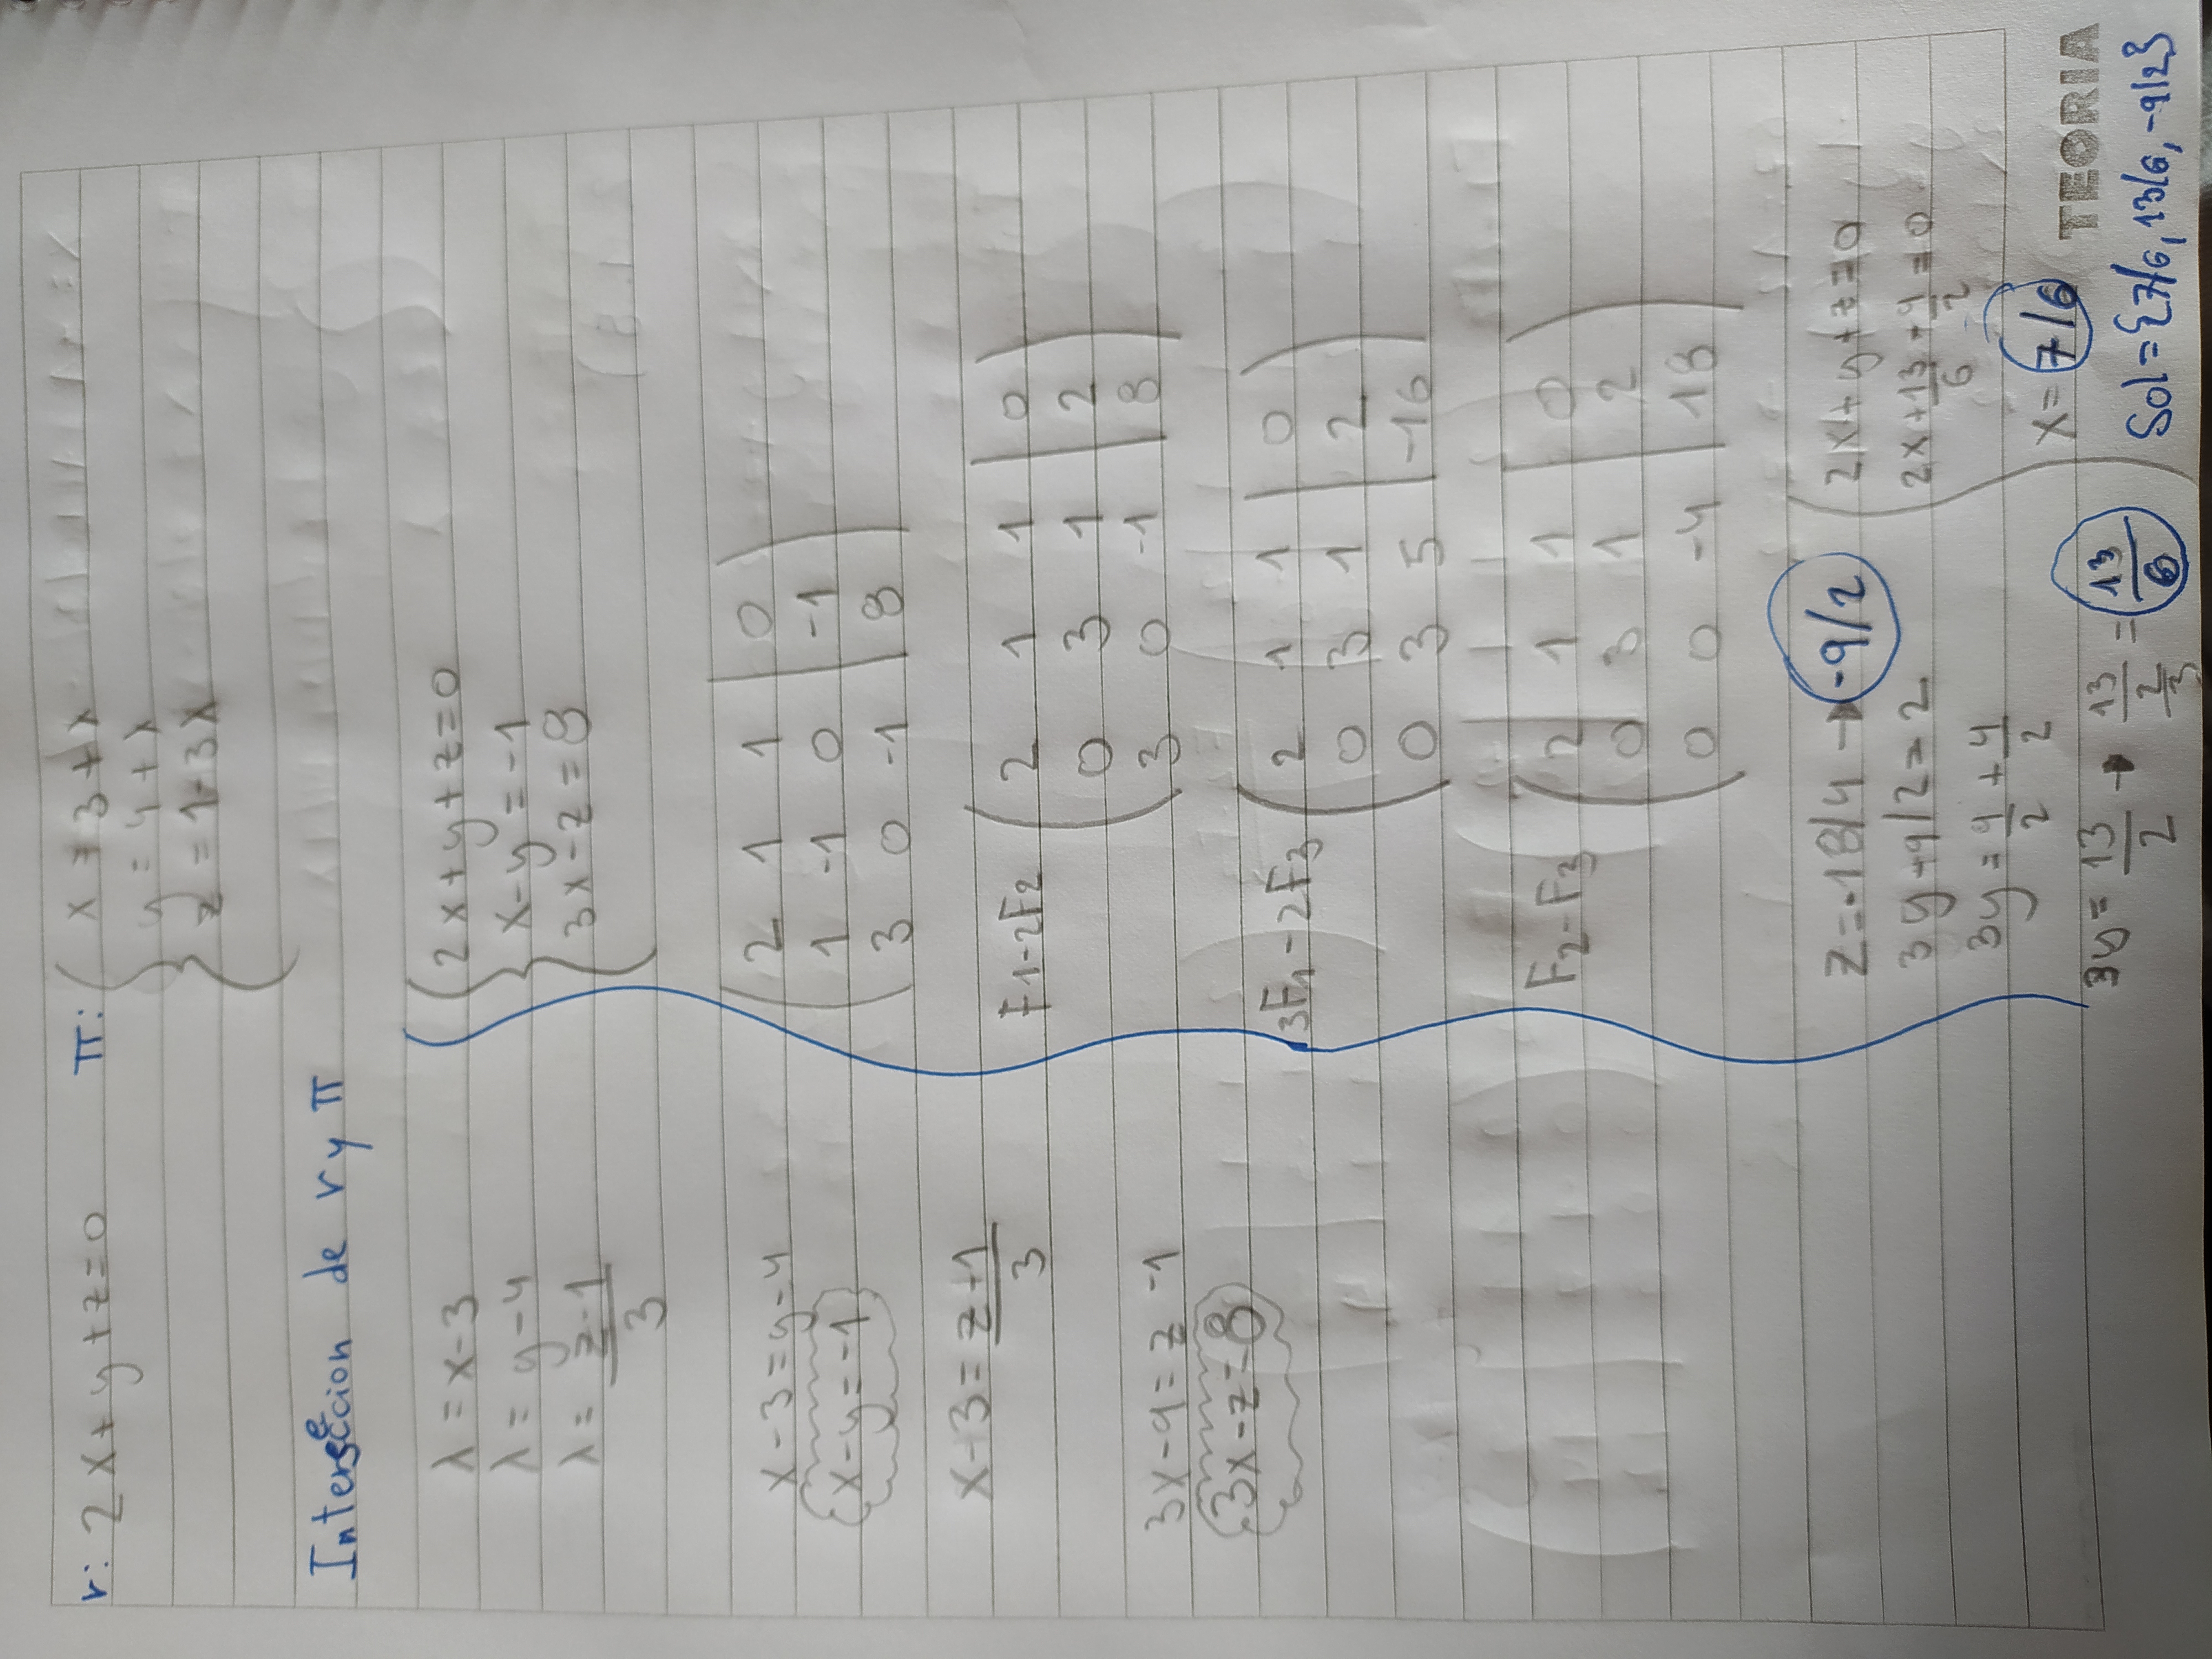 r: 2x+y+z=0
π: { x = 3+λ
y = 4+λ
z = 1-3λ
Intersección de r y π
λ = x-3
λ = y-4
λ = z-1/3
x-3=y-4
x-y=-1
x-3=z-1/3
3x-9=z-1
3x-z=8
{ 2x+y+z=0
x-y=-1
3x-z=8
( 2 1 1 | 0 )
1 -1 0 | -1
3 0 -1 | 8
F1-2F2 ( 2 1 1 | 0 )
0 3 1 | 2
3 0 -1 | 8
3F1-2F3 ( 2 1 1 | 0 )
0 3 1 | 2
0 3 5 | -16
F2-F3 ( 2 1 1 | 0 )
0 3 1 | 2
0 0 -4 | 18
z=-18/4 → -9/2
3y-9/2=2
3y=9/2+4/2
3y=13/2 → 13/2/3 = 13/6
2x+y+z=0
2x+13/6-9/2=0
x=7/6
TEORIA
Sol={7/6, 13/6, -9/2}